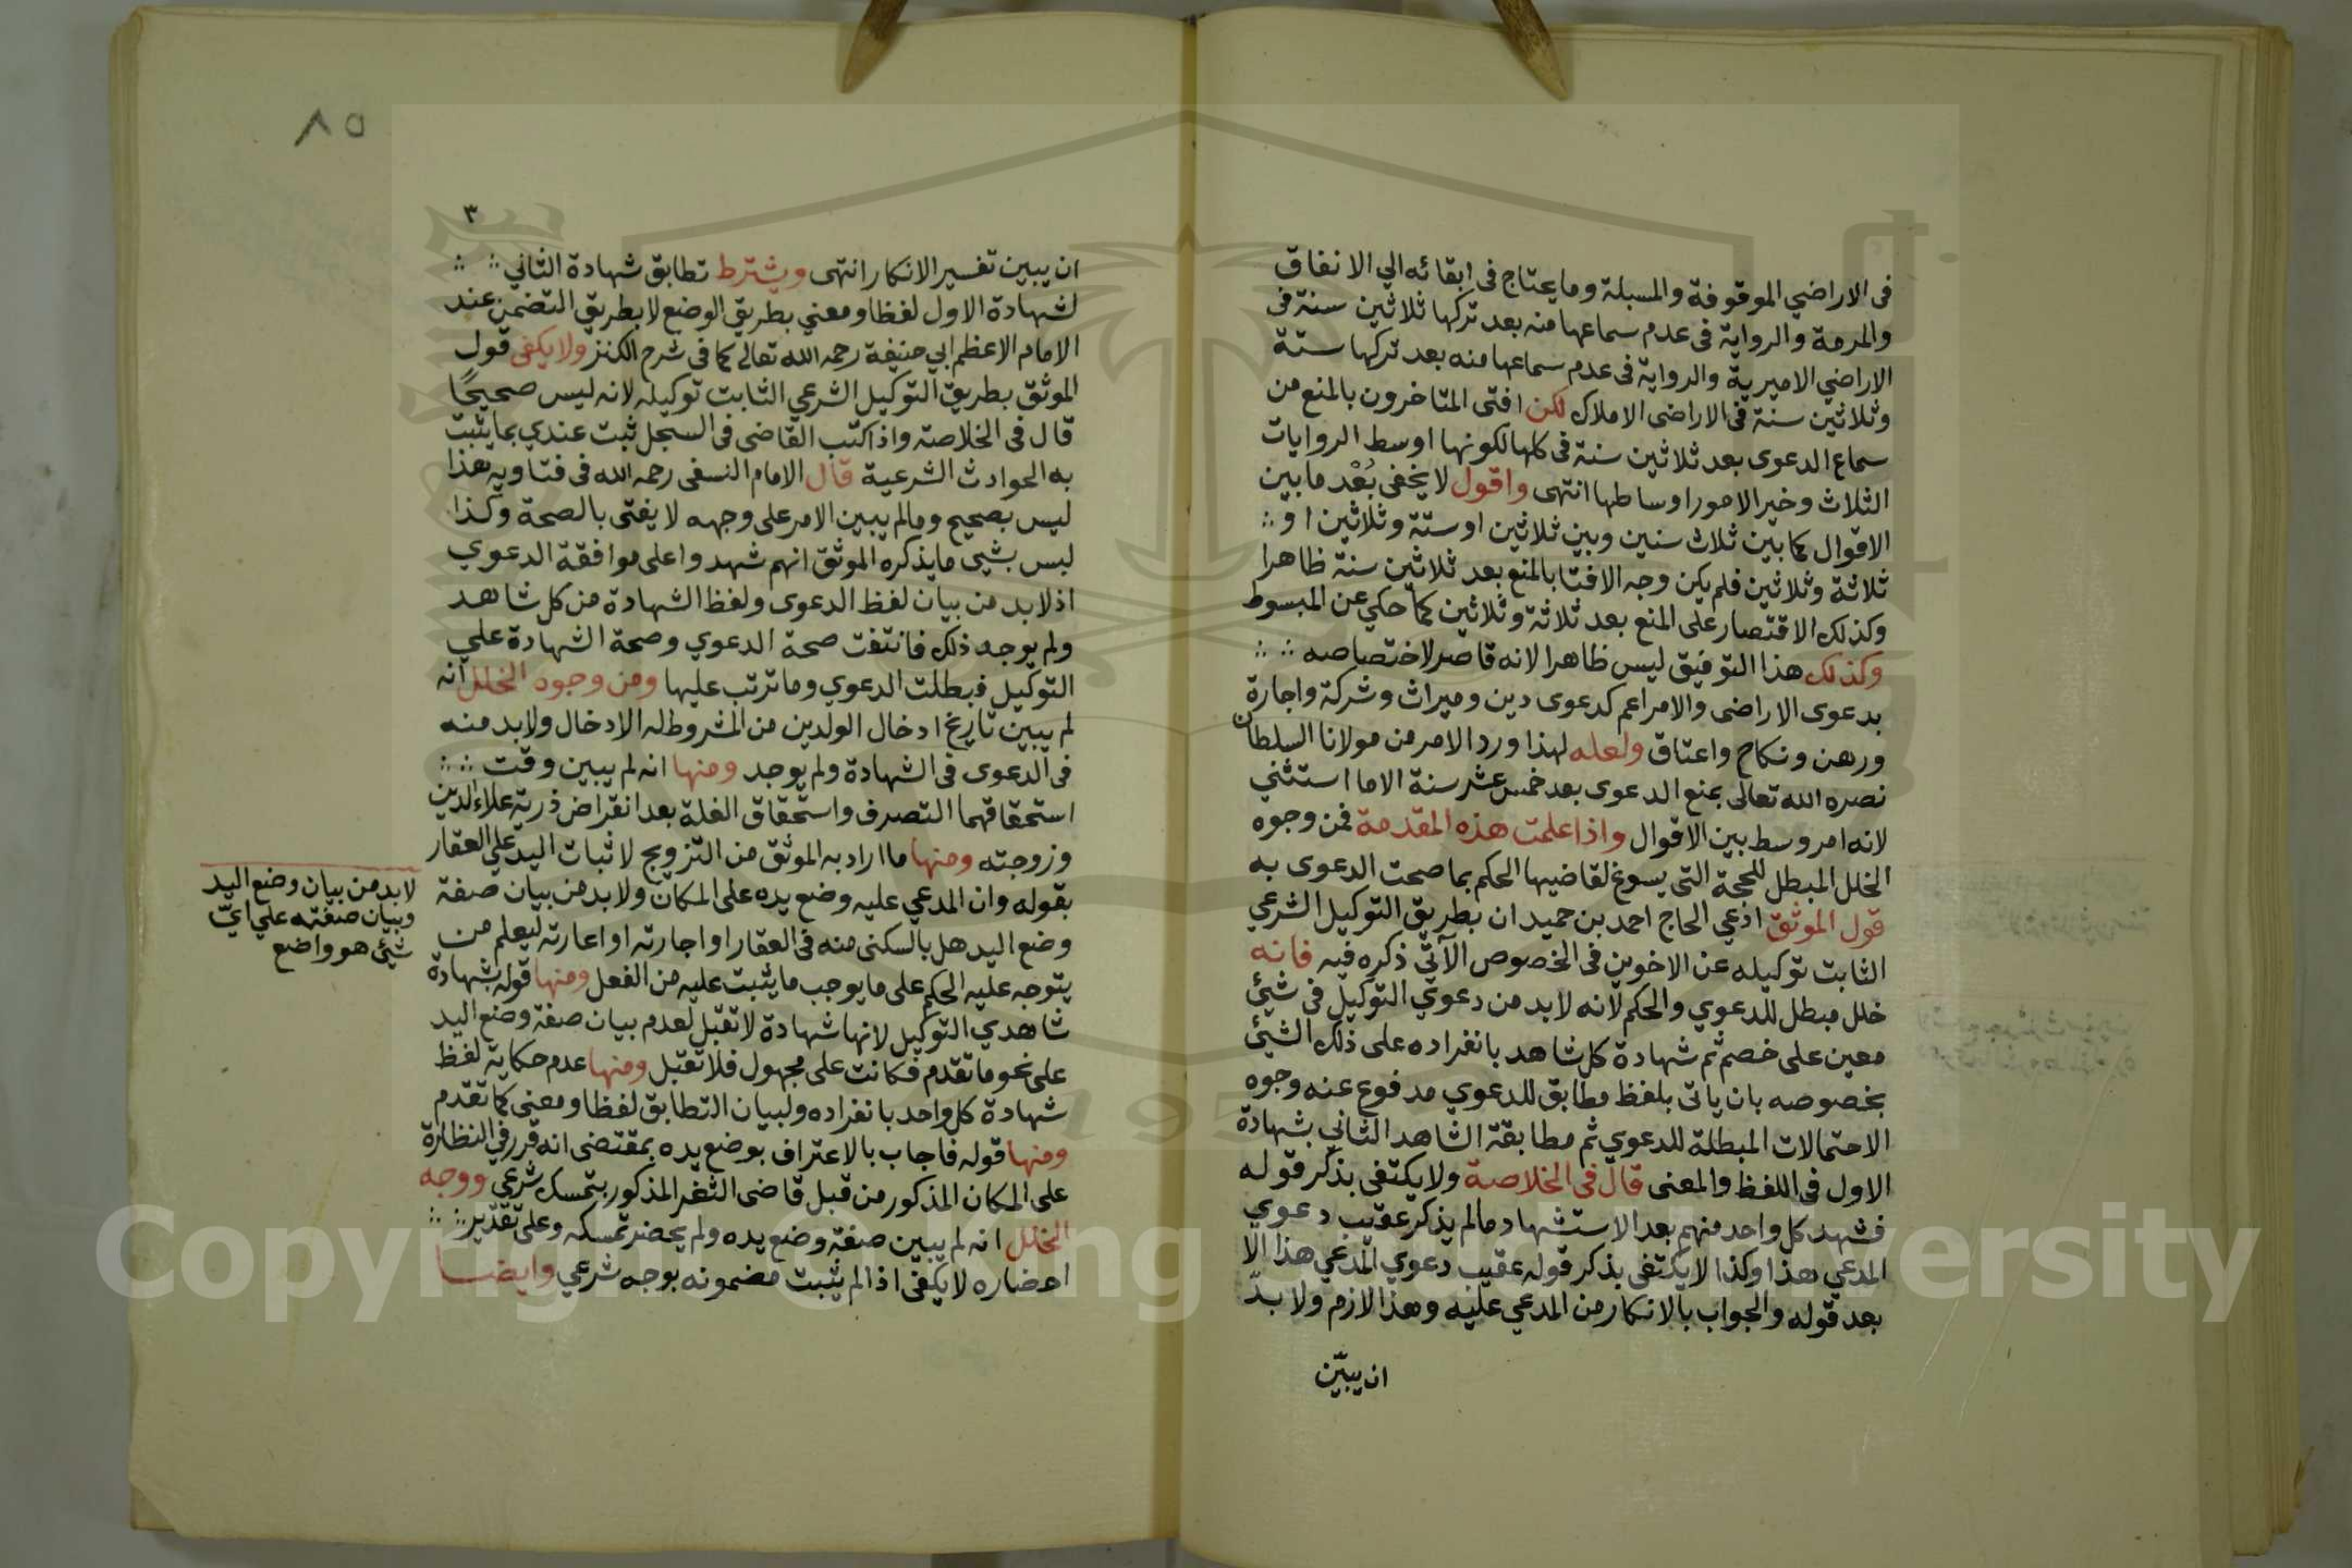 فى الاراضي الموقوفة والمسبلة وما يحتاج فى ابقائه الي الانفاق
والمرمة والرواية فى عدم سماعها منه بعد تركها ثلاثين سنة فى
الاراضي الاميرية والرواية فى عدم سماعها منه بعد تركها ستة
وثلاثين سنة فى الاراضى الاملاك لكن افتى المتاخرون بالمنع من
سماع الدعوى بعد ثلاثين سنة فى كلها لكونها اوسط الروايات
الثلاث وخير الامور اوساطها انتهى واقول لا يخفى بُعْد ما بين
الاقوال كما بين ثلاث سنين وبين ثلاثين او ستة وثلاثين او
ثلاثة وثلاثين فلم يكن وجه الافتا بالمنع بعد ثلاثين سنة ظاهرا
وكذلك الاقتصار على المنع بعد ثلاثة وثلاثين كما حكي عن المبسوط
وكذلك هذا التوفيق ليس ظاهرا لانه قاصر لاختصاصه
بدعوى الاراضى والامر اعم كدعوى دين وميراث وشركة واجارة
ورهن ونكاح واعتاق ولعله لهذا ورد الامر من مولانا السلطان
نصره الله تعالى بمنع الدعوى بعد خمس عشر سنة الا ما استثني
لانه امر وسط بين الاقوال واذا علمت هذه المقدمة فمن وجوه
الخلل المبطل للحجة التى يسوغ لقاضيها الحكم بما صحت الدعوى به
قول الموثق ادعي الحاج احمد بن حميدان بطريق التوكيل الشرعي
الثابت توكيله عن الاخوين فى الخصوص الآتي ذكره فيه فانه
خلل مبطل للدعوي والحكم لانه لا بد من دعوي التوكيل فى شيئ
معين على خصم ثم شهادة كل شاهد بانفراده على ذلك الشيئ
بخصوصه بان ياتى بلفظ مطابق للدعوي مدفوع عنه وجوه
الاحتمالات المبطلة للدعوي ثم مطابقة الشاهد الثاني بشهادة
الاول فى اللفظ والمعنى قال فى الخلاصة ولا يكتفى بذكر قوله
فشهد كل واحد منهم بعد الاستشهاد مالم يذكر عقيب دعوي
المدعي هذا وكذا لا يكتفى بذكر قوله عقيب دعوي المدعي هذا الا
بعد قوله والجواب بالانكار من المدعي عليه وهذا لازم ولا بدّ
ان يبيّن
٨٥
٣
ان يبين تفسير الانكار انتهى ويشترط تطابق شهادة الثاني
لشهادة الاول لفظا ومعني بطريق الوضع لا بطريق التضمن عند
الامام الاعظم ابي حنيفة رحمه الله تعالى كما فى شرح الكنز ولا يكفى قول
الموثق بطريق التوكيل الشرعي الثابت توكيله لانه ليس صحيحًا
قال فى الخلاصة واذا كتب القاضى فى السجل ثبت عندي بما يثبت
به الحوادث الشرعية قال الامام النسفى رحمه الله فى فتاويه هذا
ليس بصحيح ومالم يبين الامر على وجهه لا يفتى بالصحة وكذا
ليس بشيى ما يذكره الموثق انهم شهدوا على موافقة الدعوي
اذ لا بد من بيان لفظ الدعوى ولفظ الشهادة من كل شاهد
ولم يوجد ذلك فانتفت صحة الدعوي وصحة الشهادة علي
التوكيل فبطلت الدعوي وما ترتب عليها ومن وجوه الخلل انه
لم يبين تاريخ ادخال الولدين من المشروط له الادخال ولا بد منه
فى الدعوى فى الشهادة ولم يوجد ومنها انه لم يبين وقت
استحقاقهما التصرف واستحقاق الغلة بعد انقراض ذرية علاء الدين
وزوجته ومنها ما اراد به الموثق من التزويج لاثبات اليد علي العقار
بقوله وان المدعي عليه وضع يده على المكان ولا بد من بيان صفة
وضع اليد هل بالسكنى منه فى العقار او اجارته او اعارته ليعلم من
يتوجه عليه الحكم على ما يوجب ما يثبت عليه من الفعل ومنها قوله بشهادة
شاهدي التوكيل لانها شهادة لا تقبل لعدم بيان صفة وضع اليد
على نحو ما تقدم فكانت على مجهول فلا تقبل ومنها عدم حكاية لفظ
شهادة كل واحد بانفراده ولبيان التطابق لفظا ومعنى كما تقدم
ومنها قوله فاجاب بالاعتراف بوضع يده بمقتضى انه قرر في النظارة
على المكان المذكور من قبل قاضى الثغر المذكور بتمسك شرعي ووجه
الخلل انه لم يبين صفة وضع يده ولم يحضر تمسكه وعلى تقدير
احضاره لا يكفى اذا لم يثبت مضمونه بوجه شرعي وايضا
لا بد من بيان وضع اليد
وبيان صفته علي ايّ
شيئ هو واضع
1957
Copyright © King Saud University